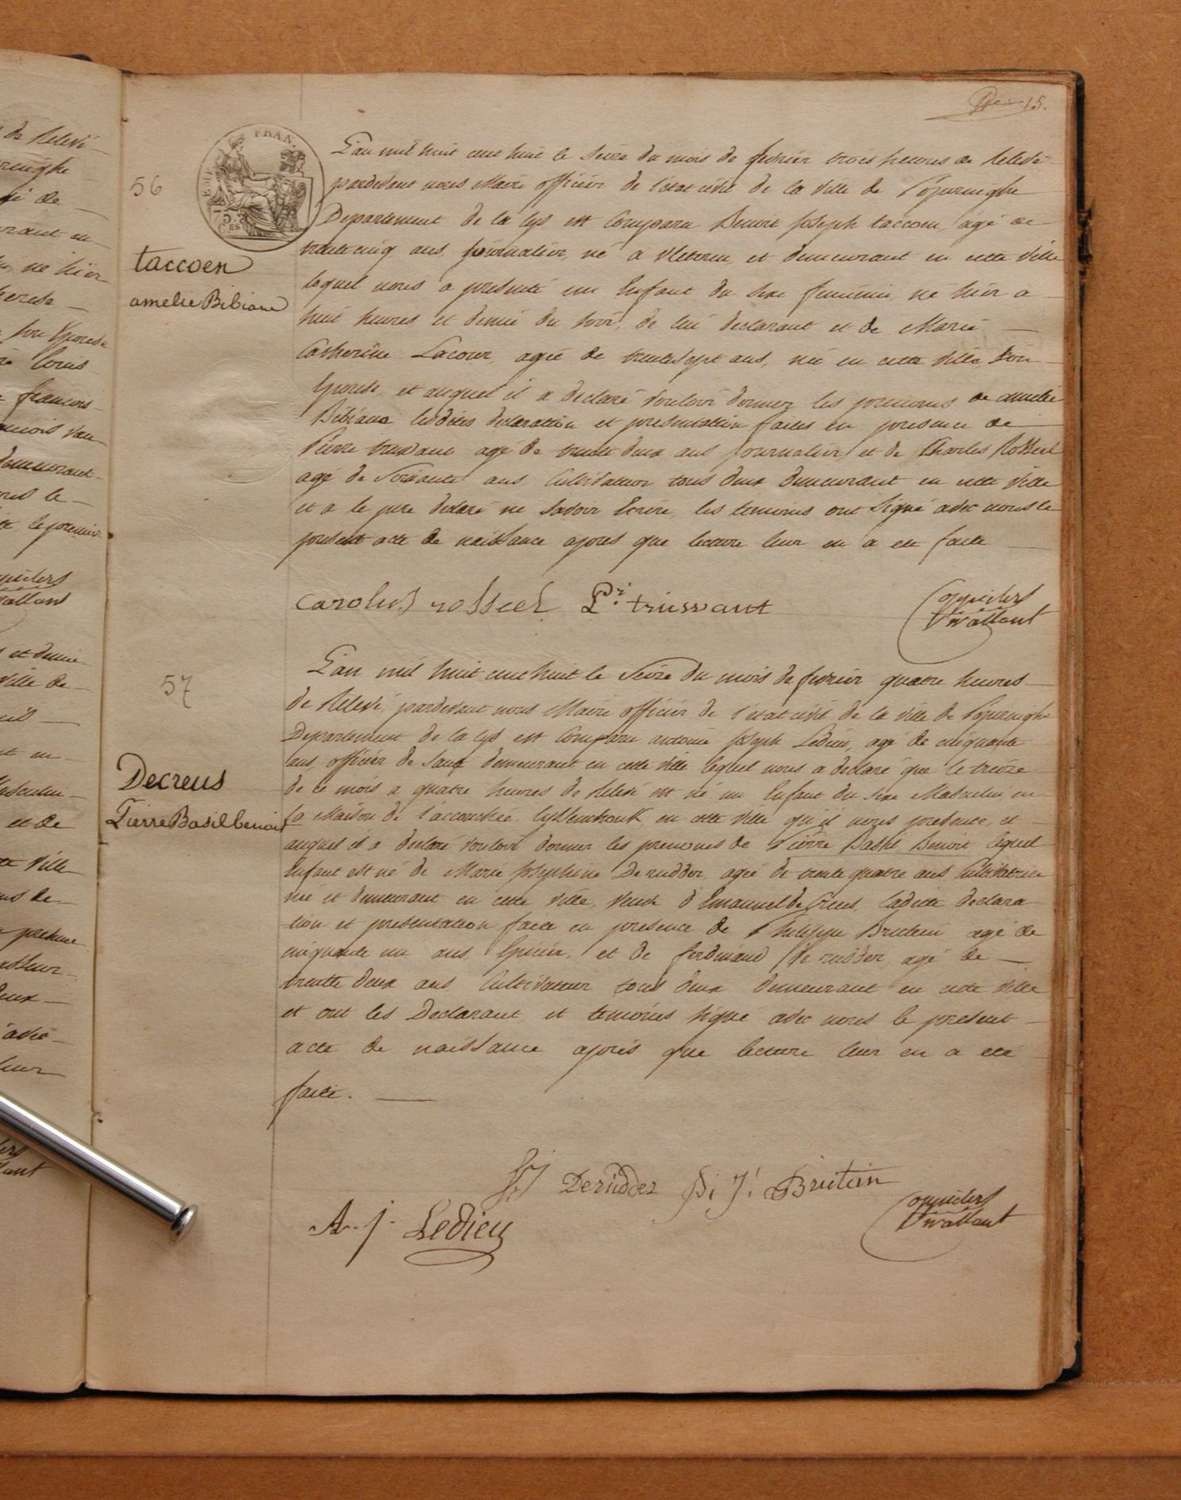 15.
56
taccoen
amelie Bibiane
L'an mil huit cent huit le Seize du mois de fevrier trois heures de Relevé
pardevant nous Maire officier de l'état civil de la ville de Poperinghe
Departement de la Lys est Comparu Benoit Joseph taccoen, agé de
trente cinq ans, journalier, né a Vleteren et demeurant en cette ville
lequel nous a presenté un Enfant du sexe feminin, né hier a
huit heures et demie du soir, de lui declarant et de Marie
Catherine Lacour, agée de trente sept ans, née en cette ville Son
Epouse, et auquel il a declaré vouloir donner les prenoms de amelie
Bibiane lesdites declaration et presentation faites en presence de
Pierre truwant agé de trente deux ans journalier, et de Charles Rosseel
agé de Soixante ans Cultivateur tous deux demeurant en cette ville
et a le pere declaré ne Savoir Ecrire, les temoins ont Signé avec nous le
present acte de naissance apres que lecture leur en a été faite
carolus rosseel Pr truwant
Coppieters
t'Wallant
57
Decreus
Pierre Basil benoit
L'an mil huit cent huit le Seize du mois de fevrier quatre heures
de Relevé, pardevant nous Maire officier de l'état civil de la ville de Poperinghe
Departement de la Lys est Comparu antoine Joseph Ledieu, agé de cinquante
ans officier de Santé demeurant en cette ville lequel nous a declaré que le treize
de ce mois a quatre heures de Relevé est né un Enfant du sexe Masculin en
la Maison de l'accouchée en cette ville qu'il nous presente, et
auquel il a declaré vouloir donner les prenoms de Pierre Basile Benoit lequel
Enfant est né de Marie Josephine De rudder, agée de trente quatre ans Cultivatrice
née et demeurant en cette ville, Veuve d'Emanuel de Creus, Ladite declara
tion et presentation faite en presence de Philippe Brutein agé de
cinquante un ans, Epicier, et de ferdinand De rudder, agé de
trente deux ans Cultivateur tous deux demeurant en cette ville
et ont les Declarant et temoins Signé avec nous le present
acte de naissance apres que lecture leur en a été
faite.
Derudder P: J: Brutein
A. j. Ledieu
Coppieters
t'Wallant